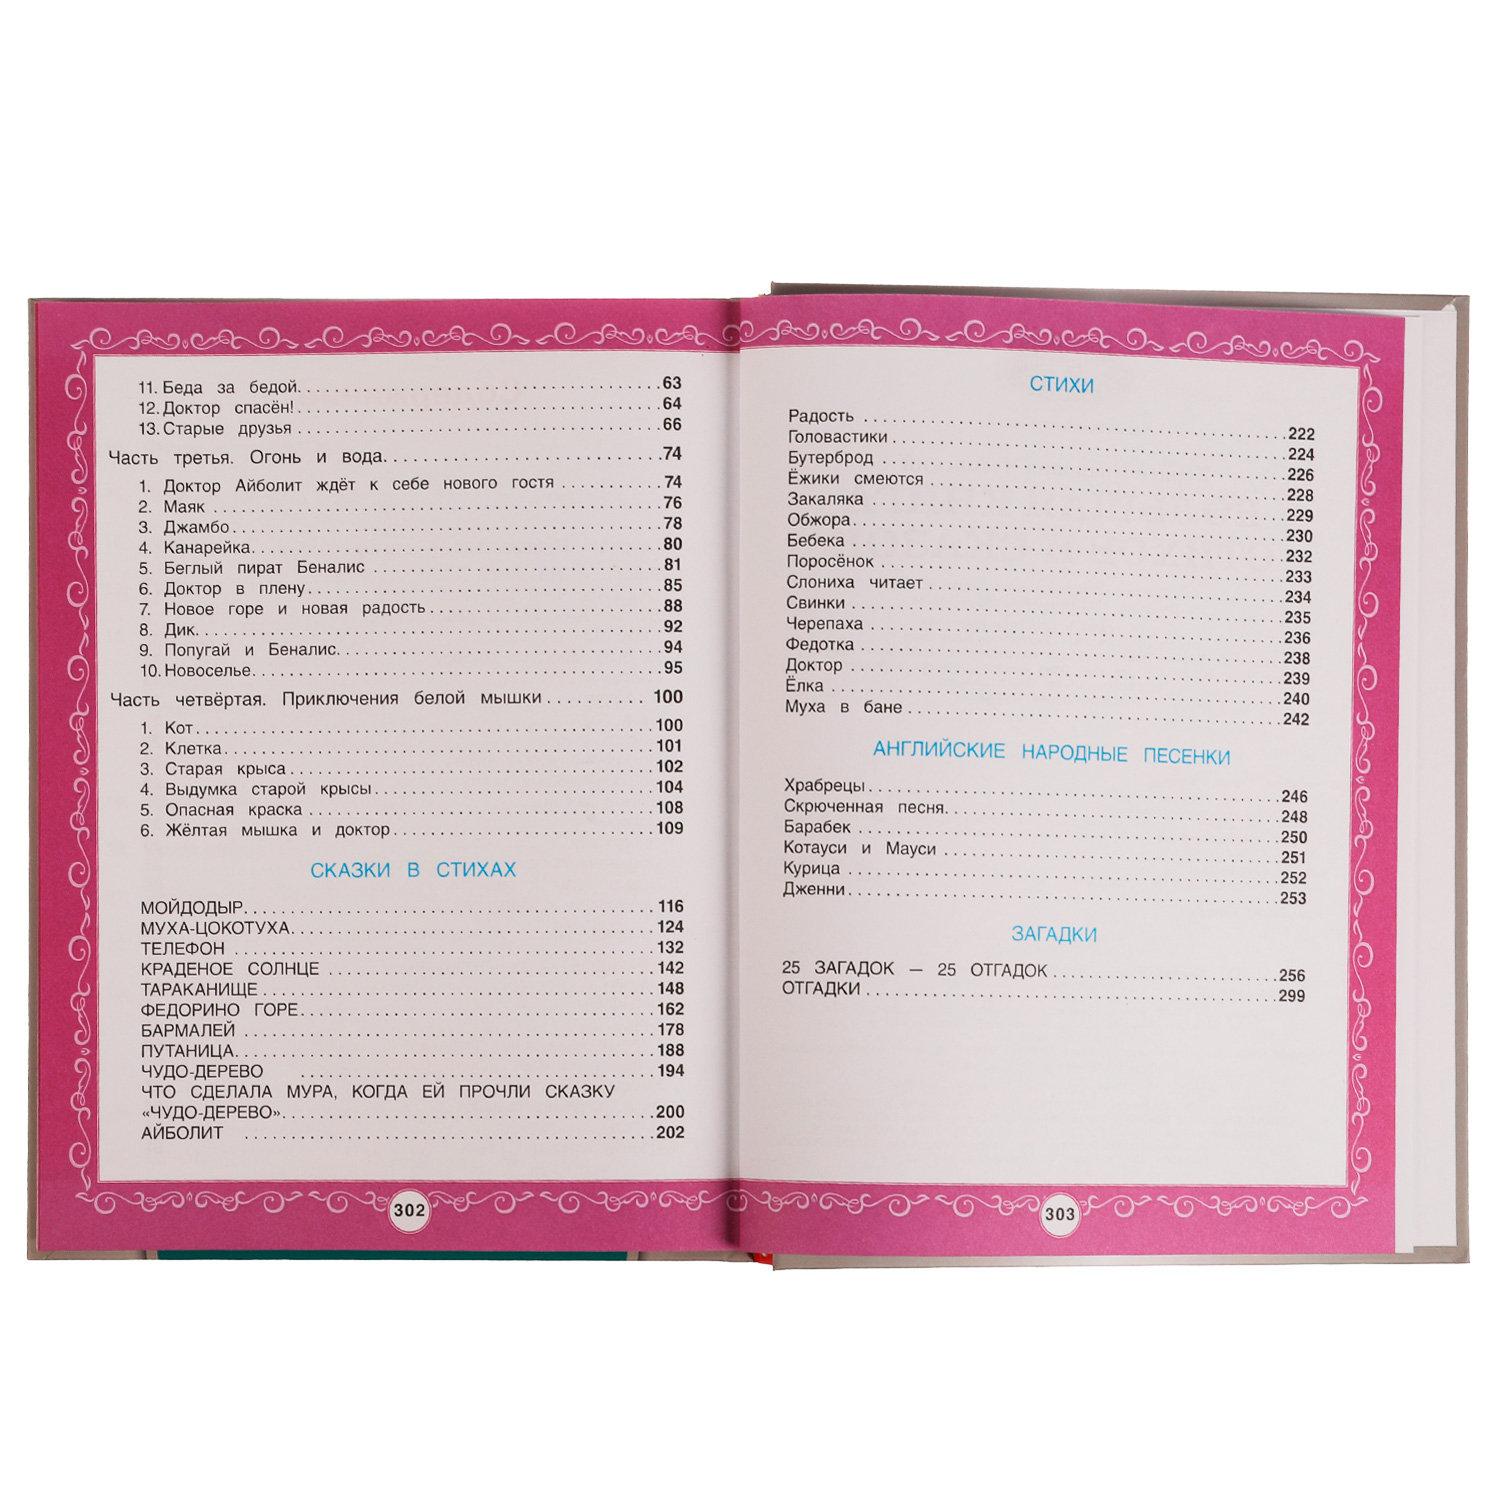 11. Беда за бедой. 63
12. Доктор спасён! 64
13. Старые друзья 66
Часть третья. Огонь и вода. 74
1. Доктор Айболит ждёт к себе нового гостя 74
2. Маяк 76
3. Джамбо 78
4. Канарейка 80
5. Беглый пират Беналис 81
6. Доктор в плену 85
7. Новое горе и новая радость 88
8. Дик 92
9. Попугай и Беналис 94
10. Новоселье 95
Часть четвёртая. Приключения белой мышки 100
1. Кот 100
2. Клетка 101
3. Старая крыса 102
4. Выдумка старой крысы 104
5. Опасная краска 108
6. Жёлтая мышка и доктор 109
СКАЗКИ В СТИХАХ
МОЙДОДЫР 116
МУХА-ЦОКОТУХА 124
ТЕЛЕФОН 132
КРАДЕНОЕ СОЛНЦЕ 142
ТАРАКАНИЩЕ 148
ФЕДОРИНО ГОРЕ 162
БАРМАЛЕЙ 178
ПУТАНИЦА 188
ЧУДО-ДЕРЕВО 194
ЧТО СДЕЛАЛА МУРА, КОГДА ЕЙ ПРОЧЛИ СКАЗКУ
«ЧУДО-ДЕРЕВО» 200
АЙБОЛИТ 202
302
СТИХИ
Радость 222
Головастики 224
Бутерброд 226
Ёжики смеются 228
Закаляка 229
Обжора 230
Бебека 232
Поросёнок 233
Слониха читает 234
Свинки 235
Черепаха 236
Федотка 238
Доктор 239
Ёлка 240
Муха в бане 242
АНГЛИЙСКИЕ НАРОДНЫЕ ПЕСЕНКИ
Храбрецы 246
Скрюченная песня 248
Барабек 250
Котауси и Мауси 251
Курица 252
Дженни 253
ЗАГАДКИ
25 ЗАГАДОК — 25 ОТГАДОК 256
ОТГАДКИ 299
303